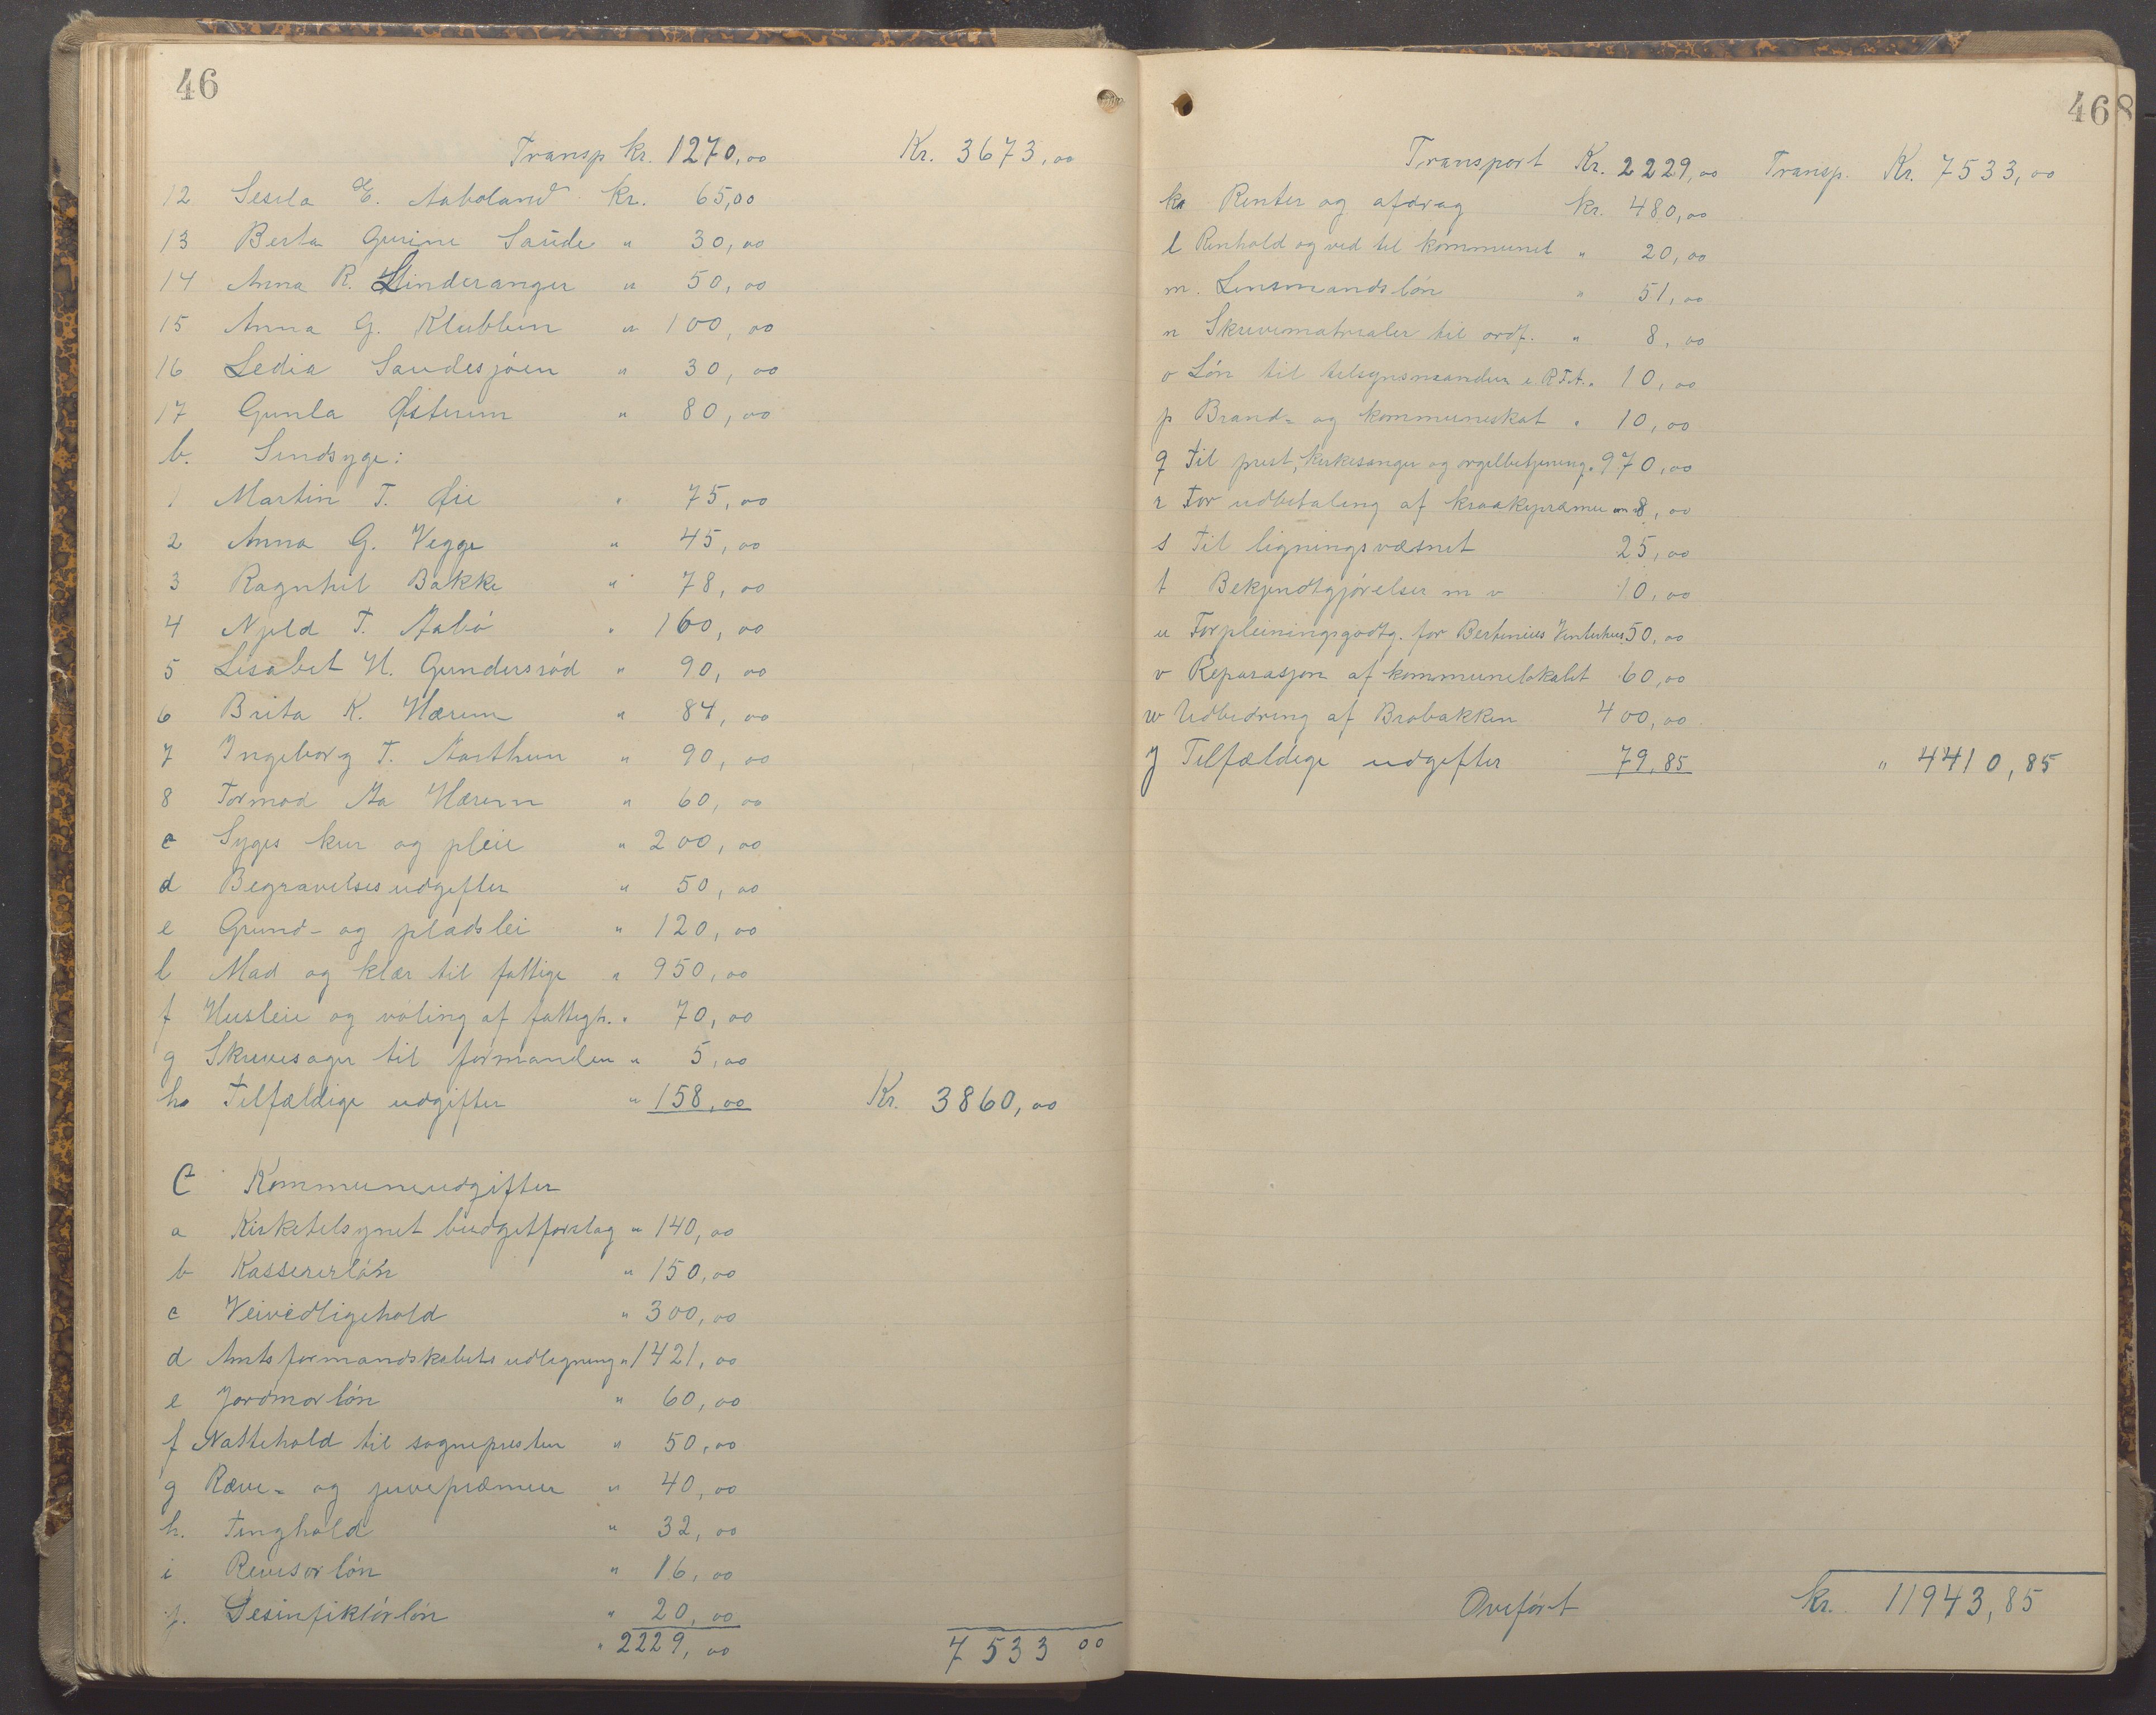 46
Transp kr. 1270,00 Kr. 3673,00
12 Sesela E. Aaboland kr. 65,00
13 Berta Gurine Saude " 30,00
14 Anna R. Linderanger " 50,00
15 Anna G. Klubben " 100,00
16 Ledia Saudesjøen " 30,00
17 Gunla Østerem " 80,00
b. Sindsyge:
1 Martin T. Øie " 75,00
2 Anna G. Vegge " 45,00
3 Ragnhil Bakke " 78,00
4 Njeld T. Aabø " 160,00
5 Lisabet H. Gundersrød " 90,00
6 Brita K. Hærem " 84,00
7 Ingeborg T. Aarthun " 90,00
8 Tormod Aa Hærem " 60,00
c Syges kur og pleie " 200,00
d Begravelsesudgifter " 50,00
e Grund- og pladslei " 120,00
l Mad og klær til fattige " 950,00
f Husleie og vøling af fattigh. " 70,00
g Skrivesager til formanden " 5,00
h Tilfældige udgifter " 158,00 Kr. 3860,00
C Kommuneudgifter
a Kirketilsynet budgetforslag " 140,00
b Kassererløn " 150,00
c Veivedligehold " 300,00
d Amtsformandskabets udligning " 1421,00
e Jordmorløn " 60,00
f Nattehold til sognepresten " 50,00
g Ræve- og jervepræmier " 40,00
h. Tinghold " 32,00
i Revisorløn " 16,00
j. Desinfiktørløn " 20,00
" 2229,00 7533 00
468
Transport Kr. 2229,00 Transp. Kr. 7533,00
k Renter og afdrag kr. 480,00
l Renhold og ved til kommunel " 20,00
m. Lensmandsløn " 51,00
n Skrivematrialer til ordf. " 8,00
o Løn til tilsynsmanden i R.F.A. " 10,00
p Brand- og kommuneskat " 10,00
q Til prest, kirkesanger og orgelbetjening " 970,00
r For udbetaling af kraakepræmier 8,00
s Til ligningsvæsnet 25,00
t Bekjendtgjørelser m v 10,00
u Forpleiningsgodtg. for Bertinius Vinterhus 50,00
v Reparasjon af kommunelokalet 60,00
w Udbedring af Brobakken 400,00
y Tilfældige udgifter 79,85 " 4410,85
Overført kr. 11943,85